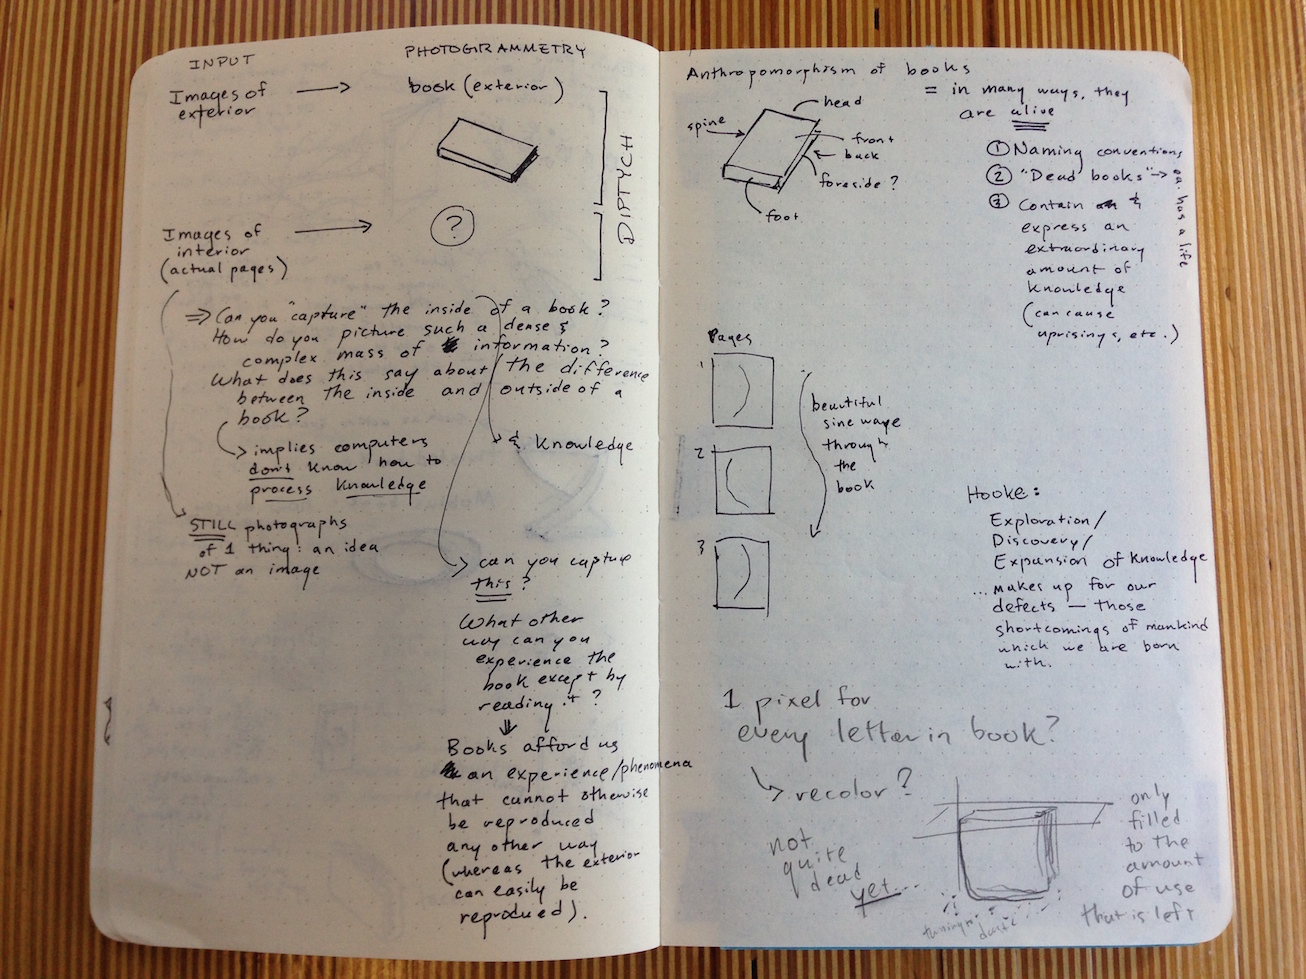 INPUT
PHOTOGRAMMETRY
Images of
exterior
book (exterior)
DIPTYCH
Images of
interior
(actual pages)
?
⇒ Can you "capture" the inside of a book?
How do you picture such a dense &
complex mass of information?
What does this say about the difference
between the inside and outside of a
book?
implies computers
don't know how to
process knowledge
& knowledge
STILL photographs
of 1 thing: an idea
NOT an image
can you capture
this?
What other
way can you
experience the
book except by
reading it?
Books afford us
an experience/phenomena
that cannot otherwise
be reproduced
any other way
(whereas the exterior
can easily be
reproduced).
Anthropomorphism of books
= in many ways, they
are alive
head
spine
front
back
foreside?
foot
① Naming conventions
② "Dead books" →
ea. has a life
③ Contain &
express an
extraordinary
amount of
knowledge
(can cause
uprisings, etc.)
Pages
1
2
3
beautiful
sine wave
through
the
book
Hooke:
Exploration/
Discovery/
Expansion of Knowledge
...makes up for our
defects — those
shortcomings of mankind
which we are born
with.
1 pixel for
every letter in book?
recolor?
not
quite
dead
yet...
only
filled
to the
amount
of use
that is left
turning to
dust?